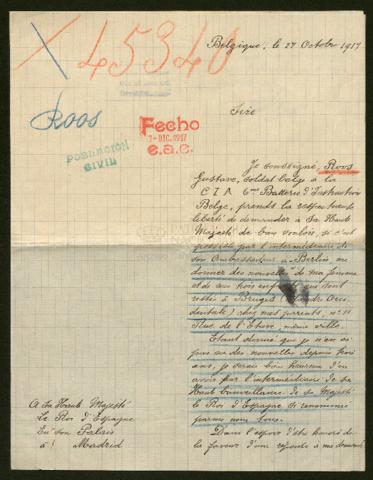 45340
Belgique, le 27 Octobre 1917
Roos
Fecho
7 - DIC. 1917
e.a.c.
POBLACIÓN
CIVIL
Sire
Je soussigné, Roos
Gustave, soldat belge à la
C I A 6me Batterie d'Instruction
Belge, prends la respectueuse
liberté de demander à Sa Haute
Majesté de bien vouloir, si c'est
possible par l'intermédiaire de
son Ambassadeur à Berlin me
donner des nouvelles de ma femme
et de mes enfants qui sont
restés à Bruges (Flandre Occi
dentale) chez mes parents, n° 11
Rue de l', même ville.
Etant donné que je n'en ai
pas eu des nouvelles depuis trois
ans, je serais bien heureux d'en
avoir par l'intermédiaire de la
Haute bienveillance de Sa Majesté
le Roi d'Espagne si renommé
parmi nous tous.
Dans l'espoir d'être honoré de
la faveur d'une réponse à ma demande
A Sa Haute Majesté
Le Roi d'Espagne
En son Palais
à Madrid